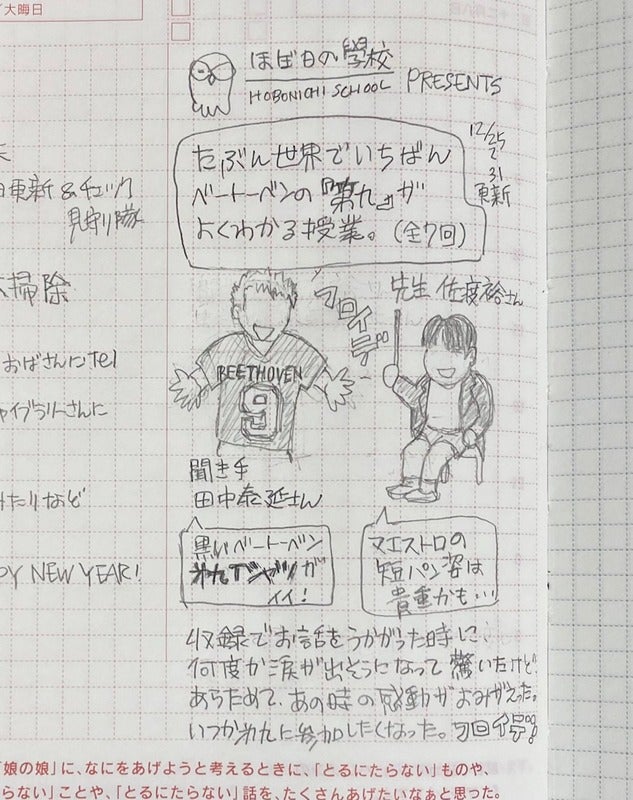 大晦日
更新 &チェック
見守り隊
掃除
おばさんにtel
ャイブラリーさんに
みたりなど
PY NEW YEAR!
ほぼ日の學校
HOBONICHI SCHOOL PRESENTS
12/25
31
更新
たぶん世界でいちばん
ベートーベンの『第九』が
よくわかる授業。(全7回)
フロイデ
先生 佐渡裕さん
BEETHOVEN
9
聞き手
田中泰延さん
黒いベートーベン
Tシャツが
イイ!
マエストロの
短パン姿は
貴重かも…
収録でお話をうかがった時に、
何度か涙が出そうになって驚いたけど
あらためて、あの時の感動がよみがえった。
いつか第九に参加したくなった。フロイデ
「娘の娘」に、なにをあげようと考えるときに、「とるにたらない」ものや、
らない」ことや、「とるにたらない」話を、たくさんあげたいなぁと思った。